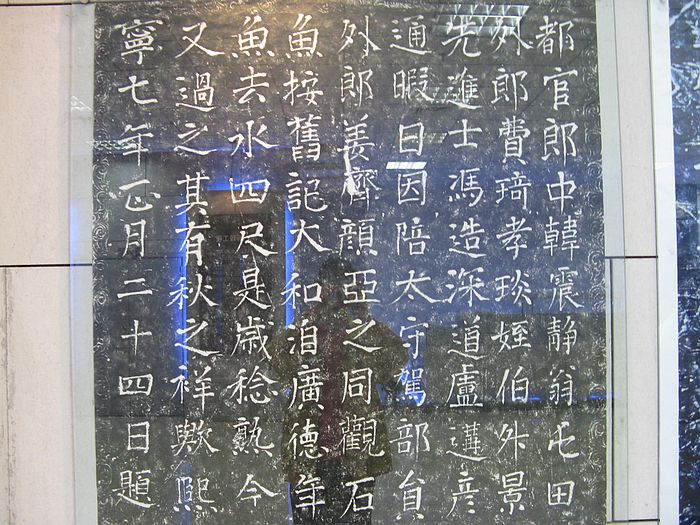 都官郎中韓震静翁屯田
外郎費琦孝琰姪伯升景
先進士馮造深道盧遘彦
通暇日因陪太守駕部員
外郎姜齊顔亞之同觀石
魚按舊記大和洎廣德年
魚去水四尺是歲稔熟今
又過之其有秋之祥歟熙
寧七年正月二十四日題